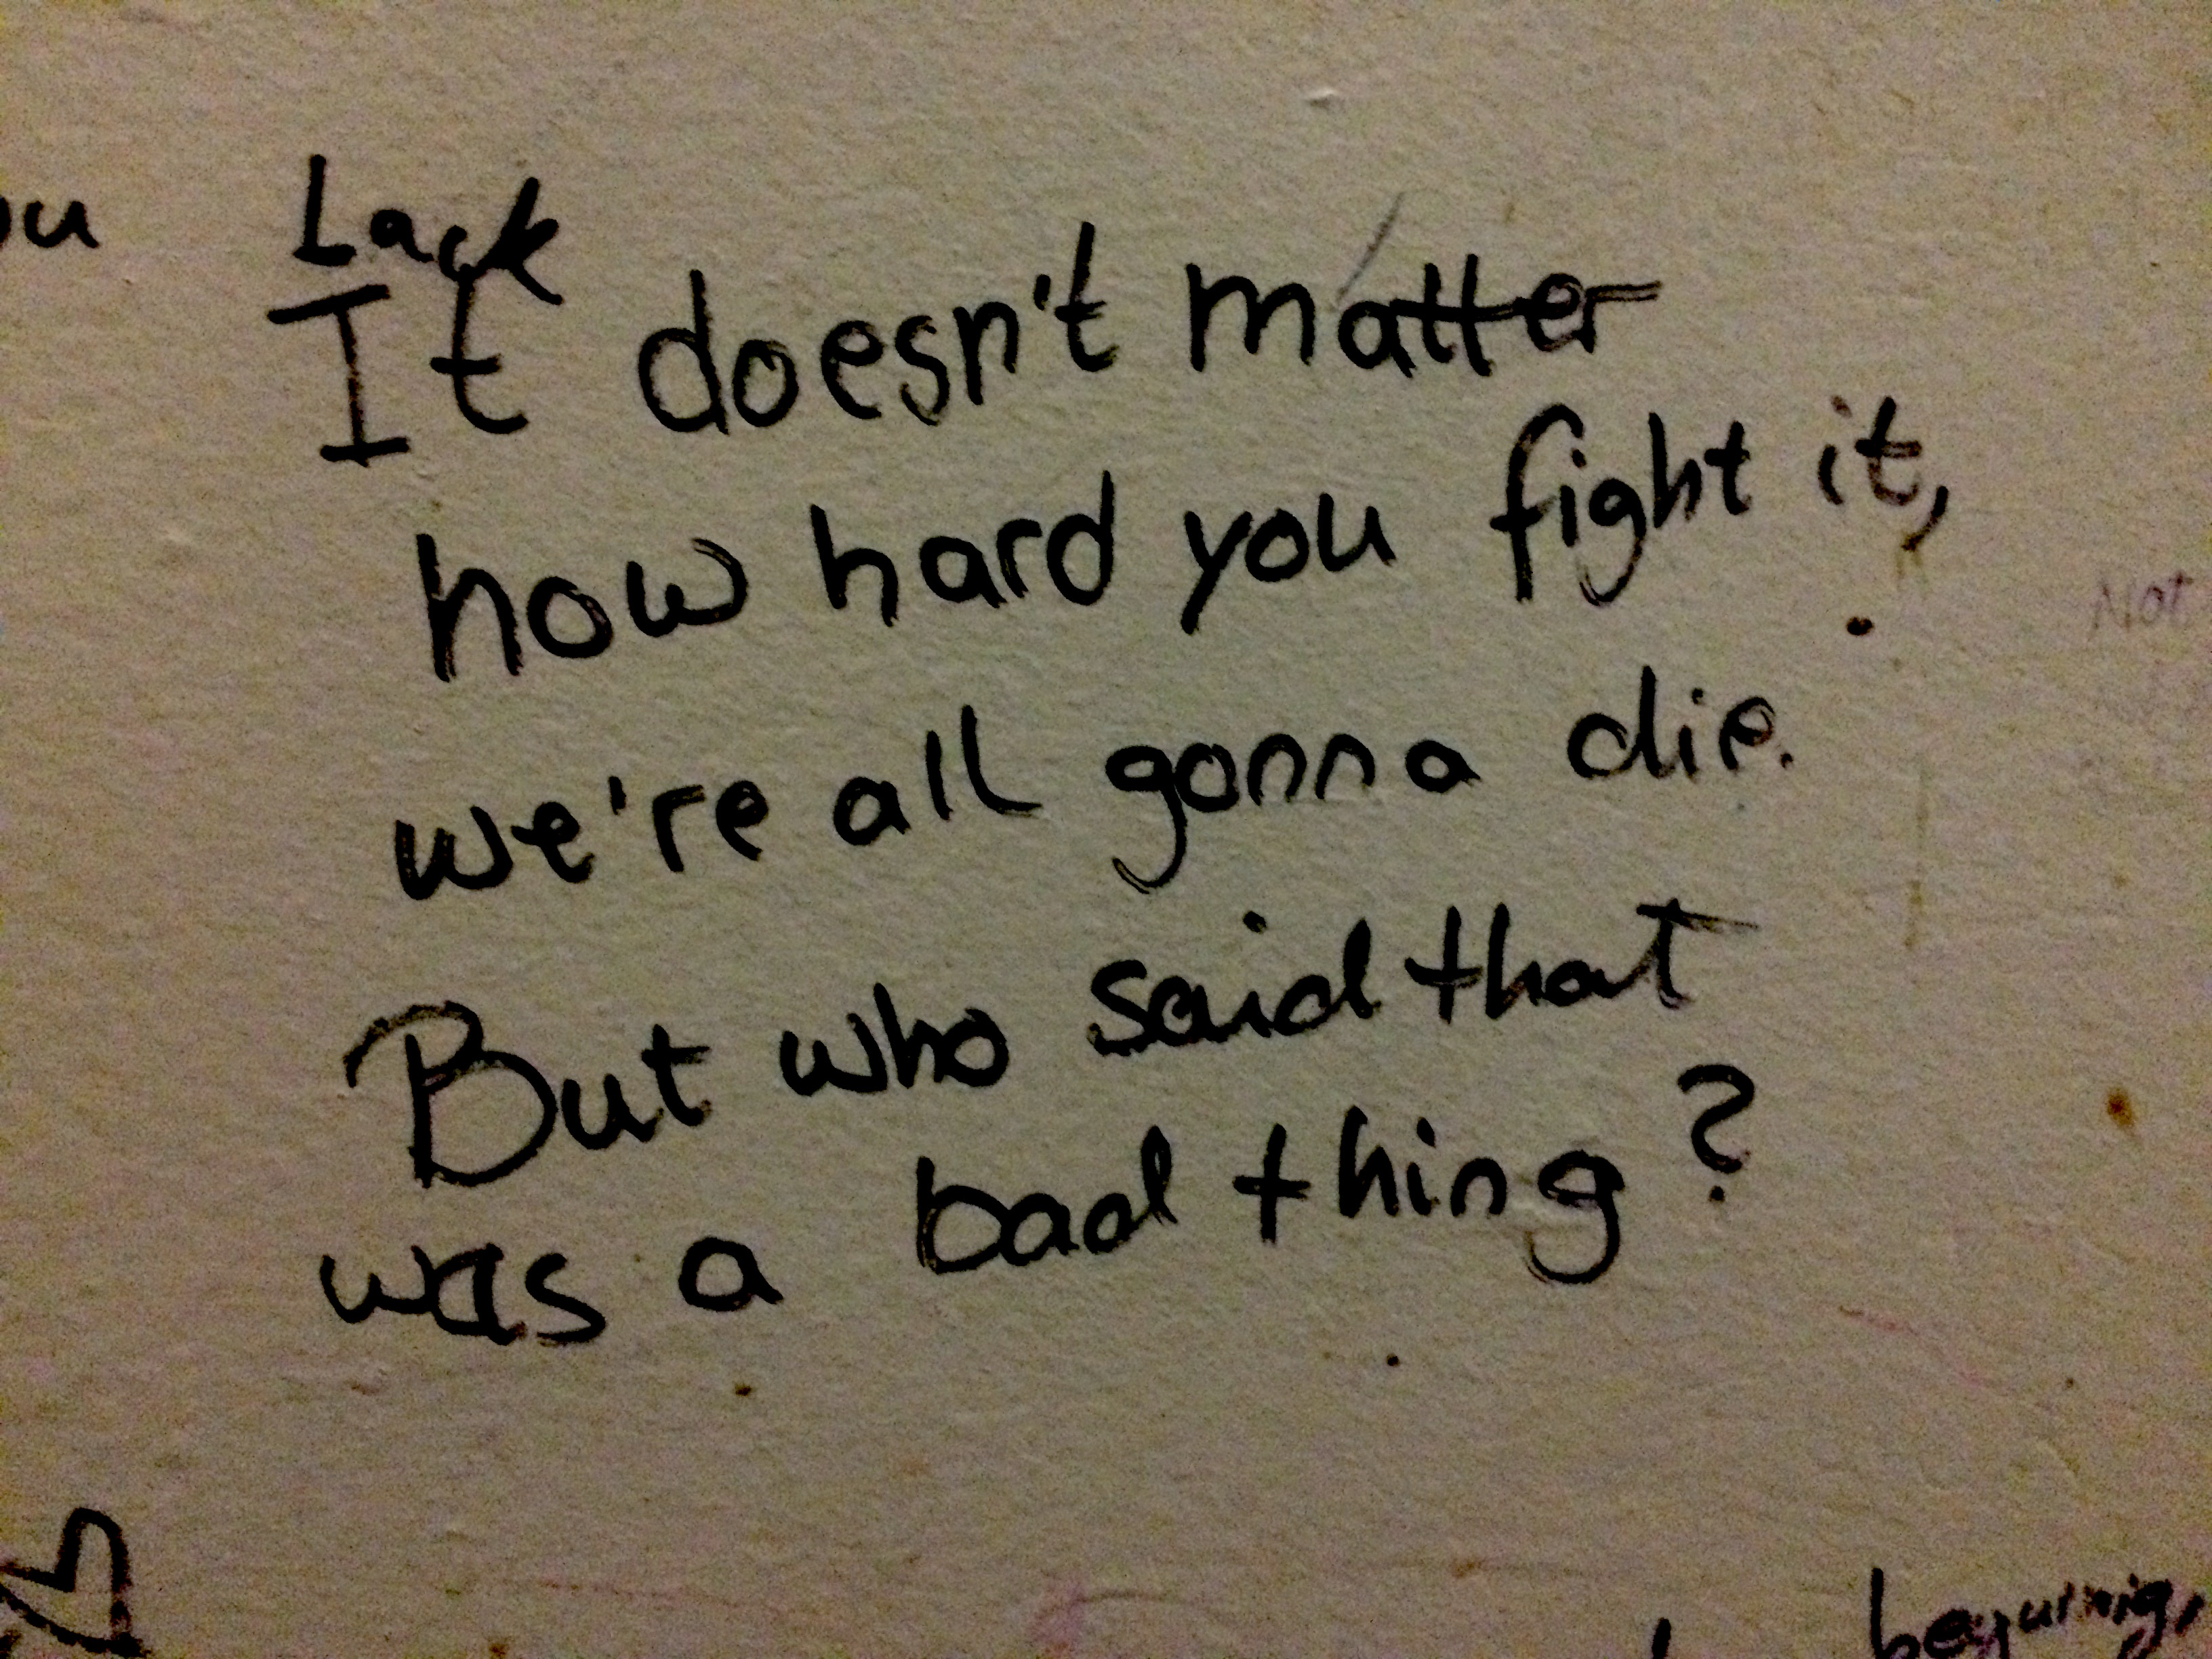 Lack
It doesn't matter
how hard you fight it,
we're all gonna die.
But who said that
was a bad thing?
Not